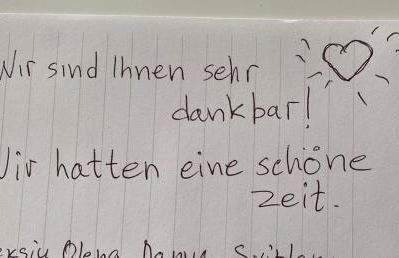 Wir sind Ihnen sehr
dankbar!
Wir hatten eine schöne
zeit.
Olena